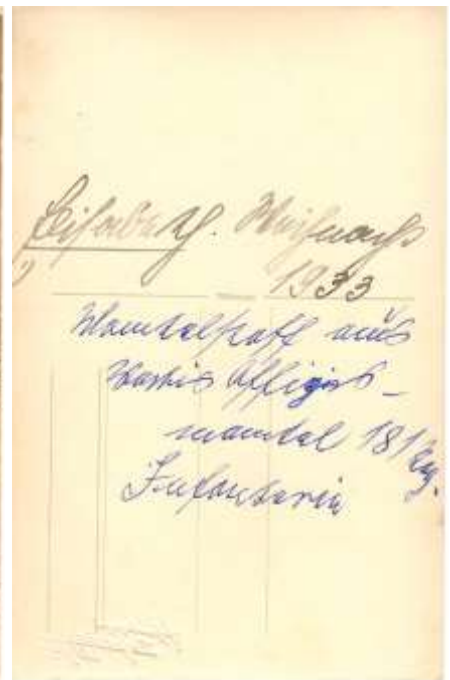 Elisabeth. Weihnacht
1933
Mantelstoff aus
Offiziers-
mantel 181 Reg.
Infanterie